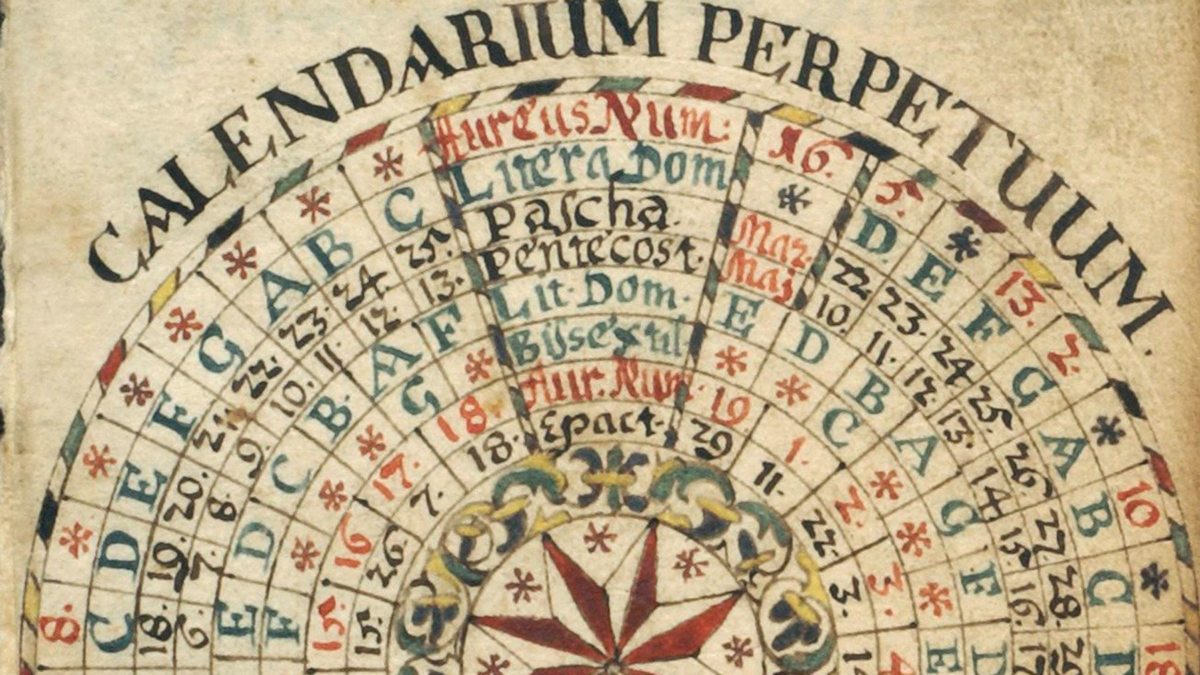 CALENDARIUM PERPETUUM.
8. * * * * * * * Aureus Num: 16. 5. * 13. 2. * 10 * 18
C D E F G A B C Litera Dom * D E F G A B C D
18. 19. 20. 21. 22. 23. 24. 25. Pascha. Mar. 22 23. 24 25. 26. 27. 28.
6. 7. 8. 9. 10. 11. 12. 13. Pentecost. Maj 10. 11. 12 13. 14 15. 16. 17
E D C B. A F Lit. Dom. E D B A G F D
F * * * G * Bissextil * * C * * * E
15. 16 17. 18. Aur. Num. 19 1. 2. 3. 4
15. 26. 7. 18. Epact. 29 11. 22. 3.